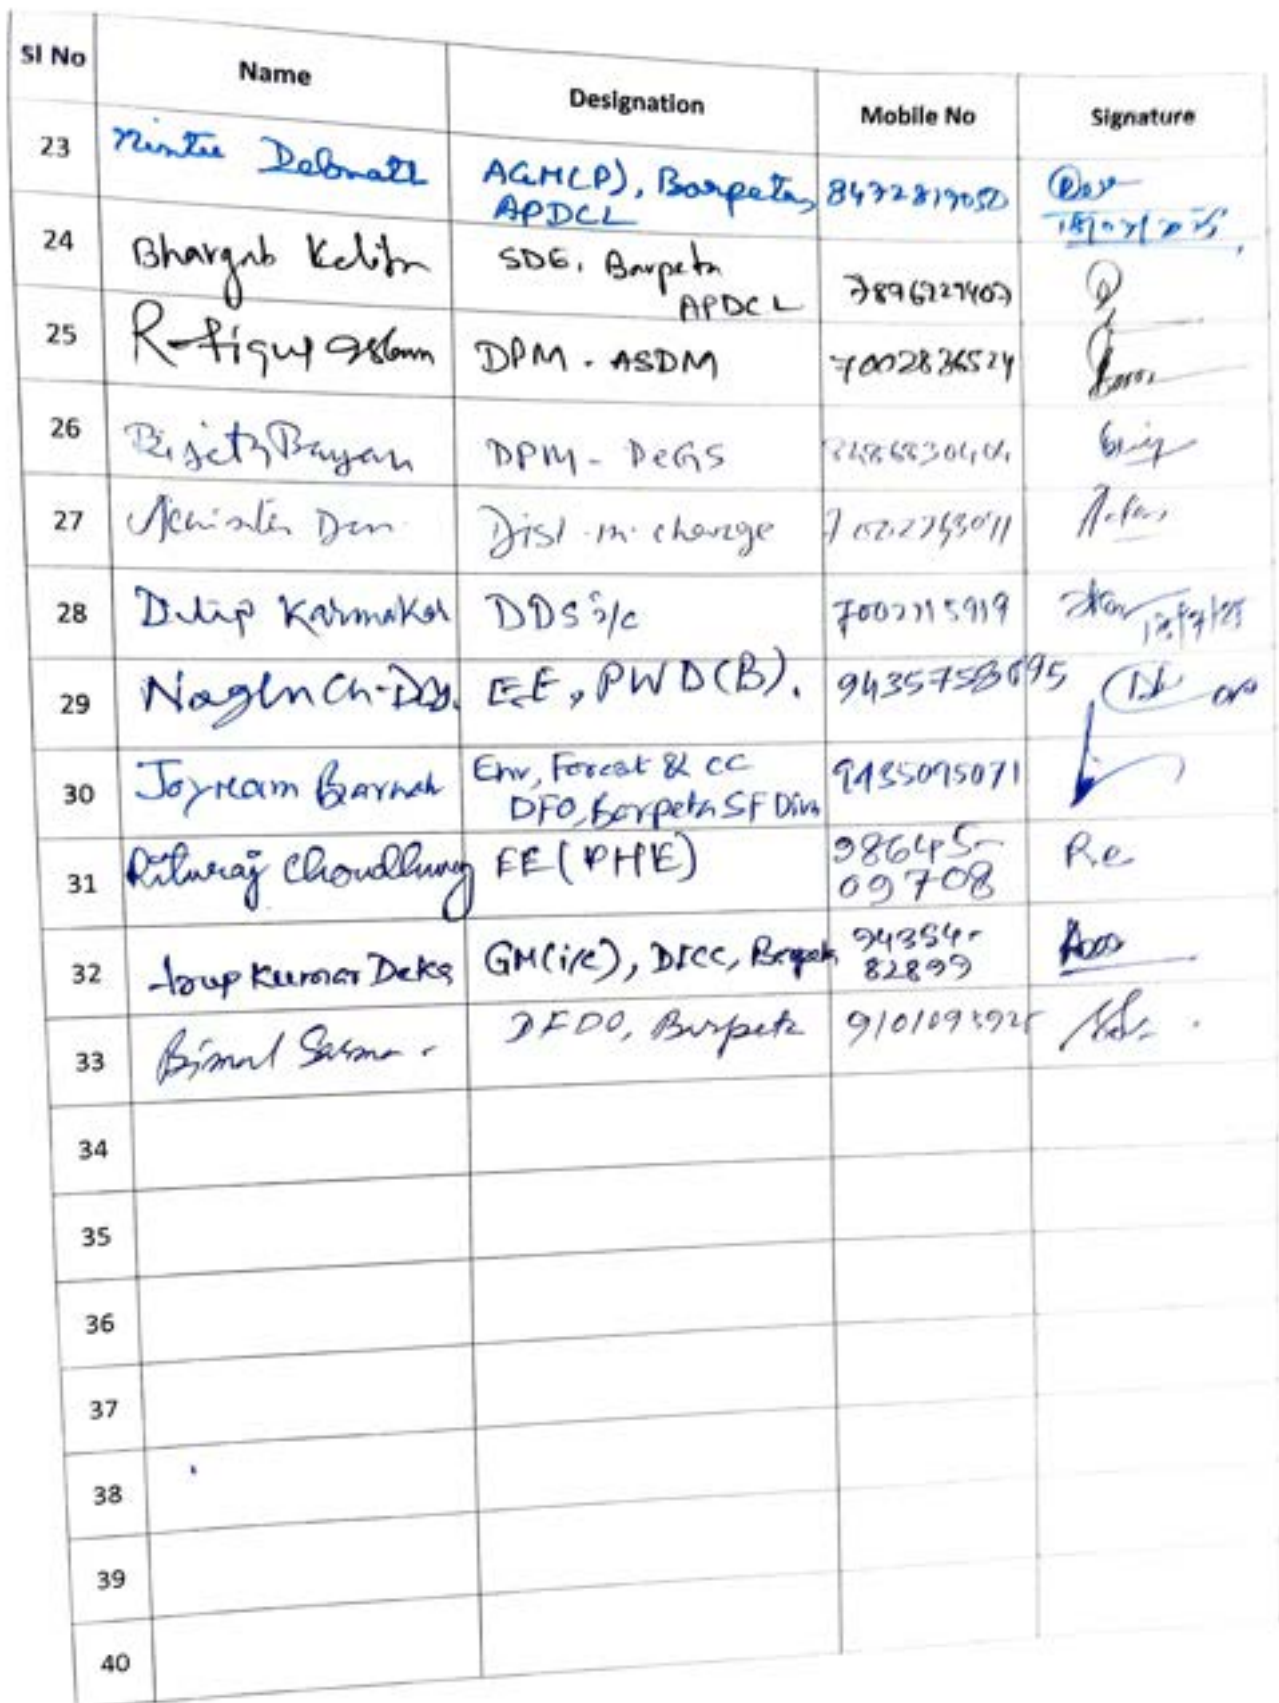 Sl No Name Designation Mobile No Signature
23 Mintu Debnath AGM(P), Barpeta,
APDCL 8472819050
24 Bhargab Kalita SDE, Barpeta
APDCL 7896227407
25 Rafiqul Islam DPM - ASDM 7002836524
26 Bayan DPM - DeGS
27 Dist - in - charge
28 Dilip Karmakar DDS i/c 7002715919
29 Nagen Ch. Das. EE, PWD(B). 9435758695
30 Joyram Baruah Env, Forest & CC
DFO, Barpeta SF Divn 9435095071
31 Rituraj Choudhury EE (PHE) 98645-
09708 R.c
32 Arup Kumar Deka GM(i/c), DICC, Barpeta 94354-
82899
33 Bimal Sarma DFDO, Barpeta
34
35
36
37
38
39
40